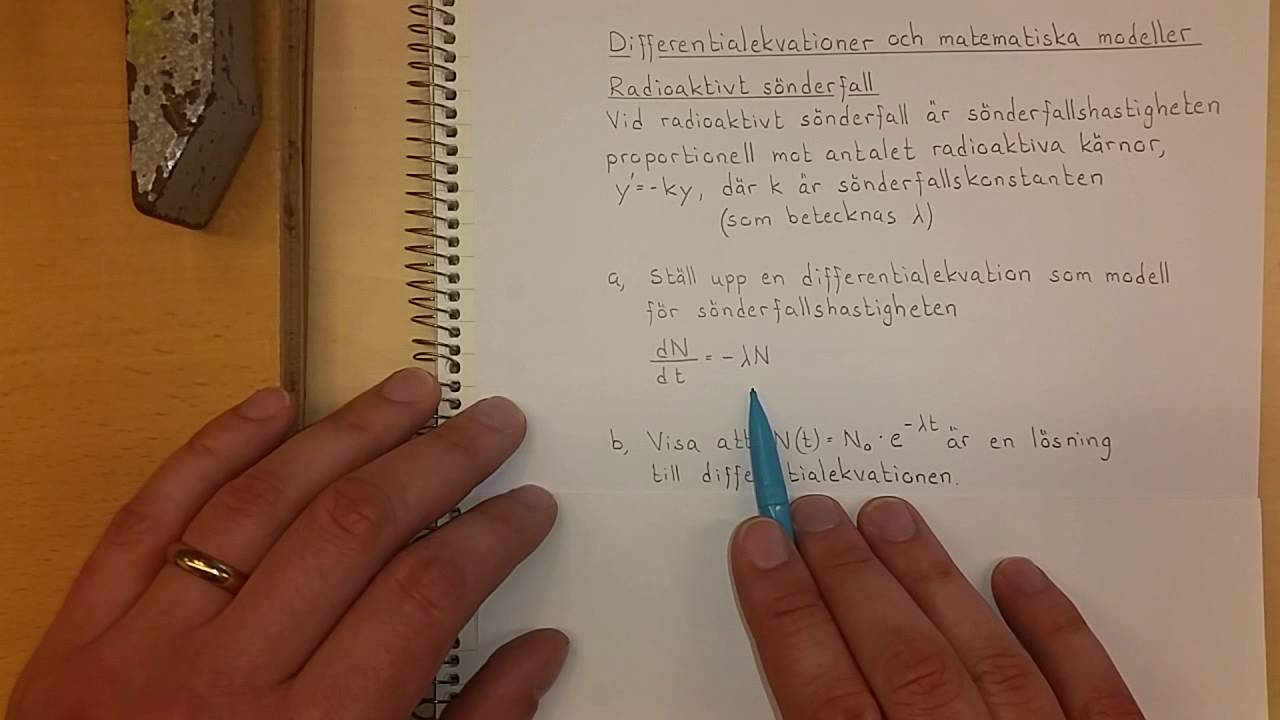 Differentialekvationer och matematiska modeller
Radioaktivt sönderfall
Vid radioaktivt sönderfall är sönderfallshastigheten
proportionell mot antalet radioaktiva kärnor,
y'=-ky, där k är sönderfallskonstanten
(som betecknas λ)
a, Ställ upp en differentialekvation som modell
för sönderfallshastigheten
dN/dt = -λN
b, Visa att N(t) = N₀·e^-λt är en lösning
till differentialekvationen.